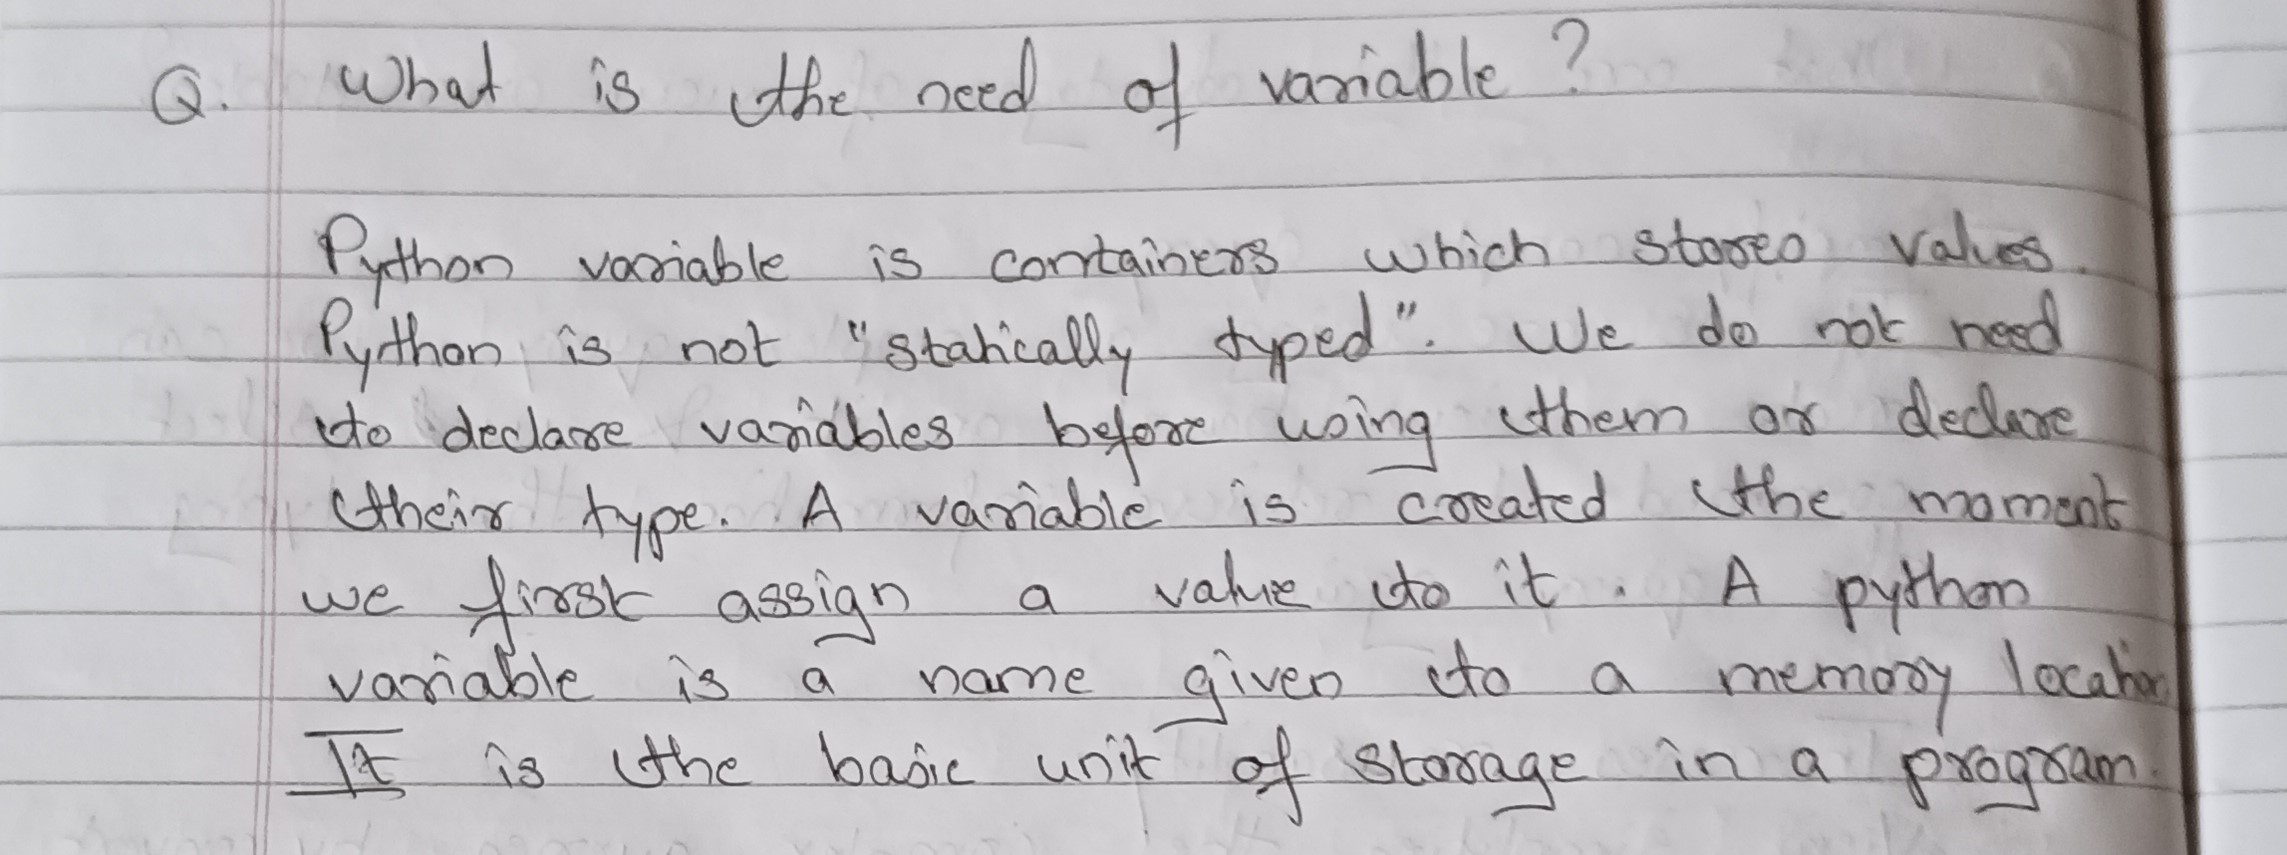 Q. What is the need of variable ?
Python variable is containers which stores values.
Python is not "statically typed". We do not need
to declare variables before using them or declare
their type. A variable is created the moment
we first assign a value to it. A python
variable is a name given to a memory location
It is the basic unit of storage in a program.